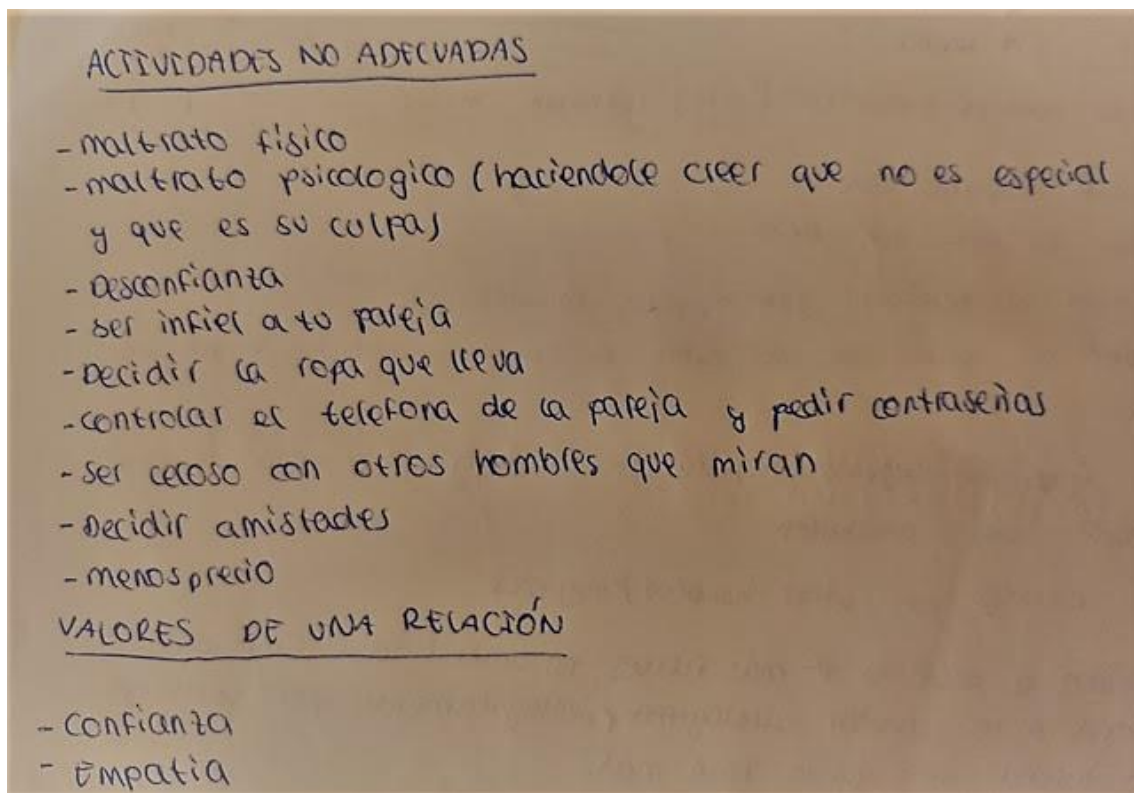 ACTIVIDADES NO ADECUADAS
- maltrato físico
- maltrato psicologico (haciendole creer que no es especial
y que es su culpa)
- Desconfianza
- ser infiel a tu pareja
- Decidir la ropa que lleva
- controlar el telefona de la pareja y pedir contraseñas
- ser celoso con otros hombres que miran
- Decidir amistades
- menosprecio
VALORES DE UNA RELACIÓN
- Confianza
- Empatia